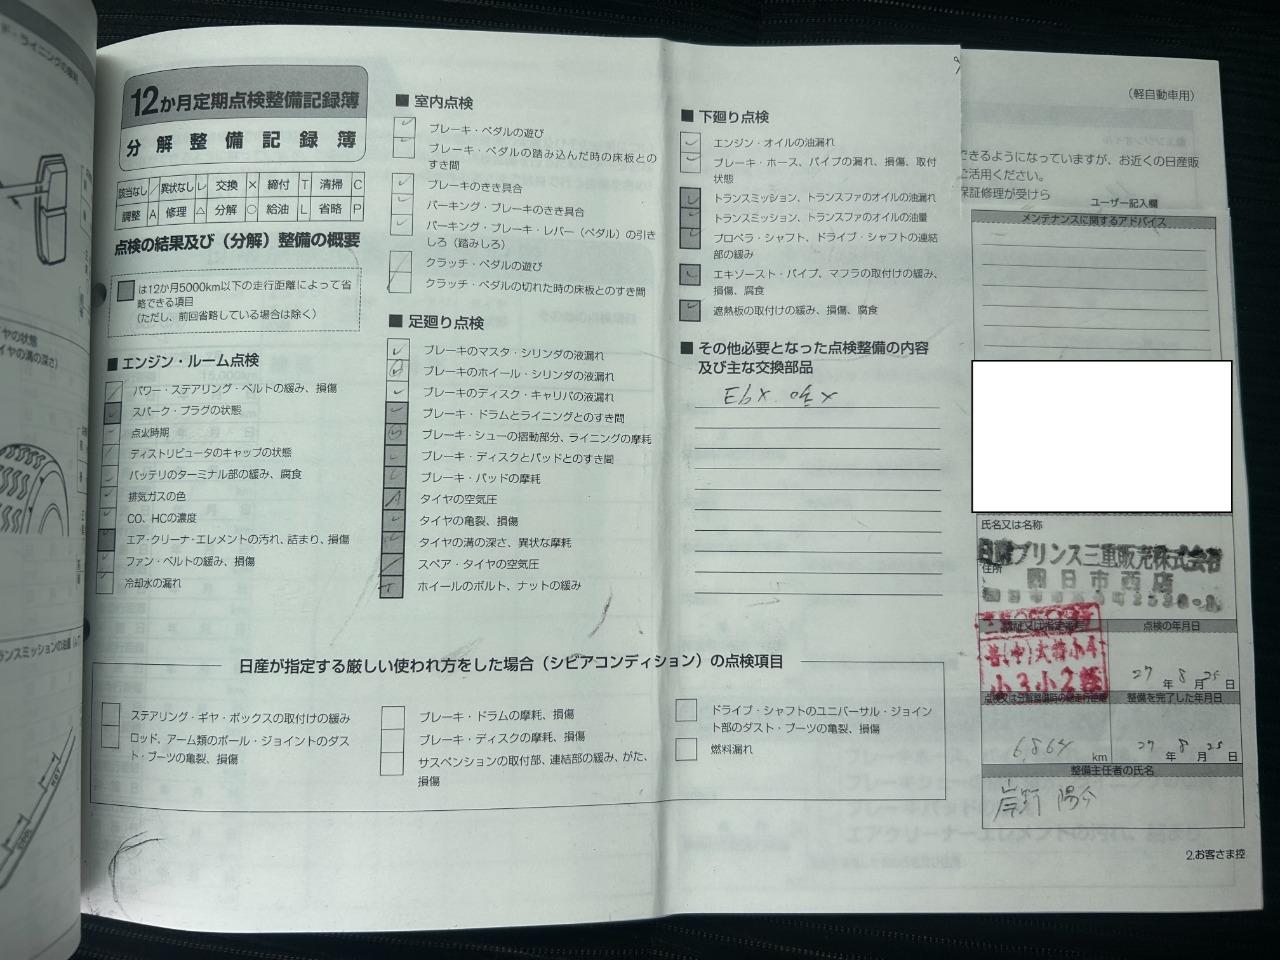 ド・ライニングの摩耗
12か月定期点検整備記録簿
分解整備記録簿
該当なし / 異状なし レ 交換 × 締付 T 清掃 C
調整 A 修理 △ 分解 ○ 給油 L 省略 P
点検の結果及び（分解）整備の概要
は12か月5000km以下の走行距離によって省
略できる項目
（ただし、前回省略している場合は除く）
■ エンジン・ルーム点検
パワー・ステアリング・ベルトの緩み、損傷
スパーク・プラグの状態
点火時期
ディストリビュータのキャップの状態
バッテリのターミナル部の緩み、腐食
排気ガスの色
CO、HCの濃度
エア・クリーナ・エレメントの汚れ、詰まり、損傷
ファン・ベルトの緩み、損傷
冷却水の漏れ
■ 室内点検
ブレーキ・ペダルの遊び
ブレーキ・ペダルの踏み込んだ時の床板との
すき間
ブレーキのきき具合
パーキング・ブレーキのきき具合
パーキング・ブレーキ・レバー（ペダル）の引き
しろ（踏みしろ）
クラッチ・ペダルの遊び
クラッチ・ペダルの切れた時の床板とのすき間
■ 足廻り点検
ブレーキのマスタ・シリンダの液漏れ
ブレーキのホイール・シリンダの液漏れ
ブレーキのディスク・キャリパの液漏れ
ブレーキ・ドラムとライニングとのすき間
ブレーキ・シューの摺動部分、ライニングの摩耗
ブレーキ・ディスクとパッドとのすき間
ブレーキ・パッドの摩耗
タイヤの空気圧
タイヤの亀裂、損傷
タイヤの溝の深さ、異状な摩耗
スペア・タイヤの空気圧
ホイールのボルト、ナットの緩み
■ 下廻り点検
エンジン・オイルの油漏れ
ブレーキ・ホース、パイプの漏れ、損傷、取付
状態
トランスミッション、トランスファのオイルの油漏れ
トランスミッション、トランスファのオイルの油量
プロペラ・シャフト、ドライブ・シャフトの連結
部の緩み
エキゾースト・パイプ、マフラの取付けの緩み、
損傷、腐食
遮熱板の取付けの緩み、損傷、腐食
■ その他必要となった点検整備の内容
及び主な交換部品
日産が指定する厳しい使われ方をした場合（シビアコンディション）の点検項目
ステアリング・ギヤ・ボックスの取付けの緩み
ロッド、アーム類のボール・ジョイントのダス
ト・ブーツの亀裂、損傷
ブレーキ・ドラムの摩耗、損傷
ブレーキ・ディスクの摩耗、損傷
サスペンションの取付部、連結部の緩み、がた、
損傷
ドライブ・シャフトのユニバーサル・ジョイン
ト部のダスト・ブーツの亀裂、損傷
燃料漏れ
（軽自動車用）
できるようになっていますが、お近くの日産販
ご活用ください。
保証修理が受けら
ユーザー記入欄
メンテナンスに関するアドバイス
氏名又は名称
日産プリンス三重販売株式会社
住所
四日市西店
点検の年月日
27年8月25日
整備を完了した年月日
6,864 km
27年8月25日
整備主任者の氏名
2.お客さま控